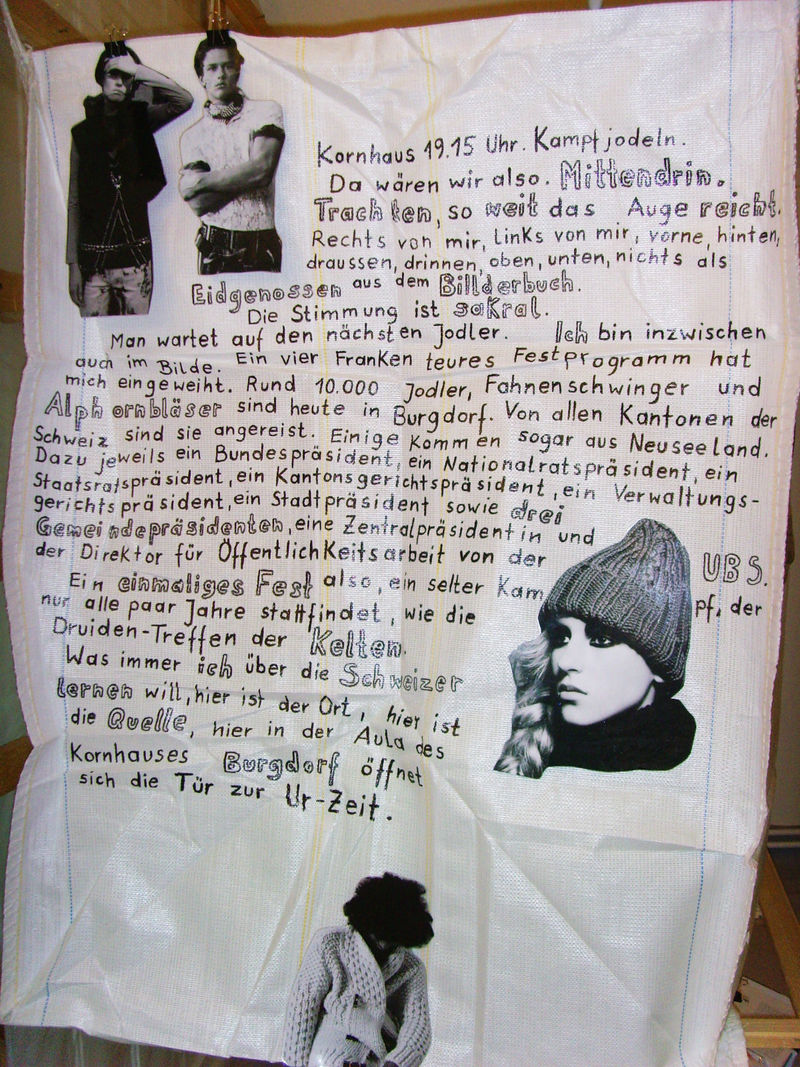 Kornhaus 19.15 Uhr. Kampfjodeln.
Da wären wir also. Mittendrin.
Trachten, so weit das Auge reicht.
Rechts von mir, links von mir, vorne, hinten,
draussen, drinnen, oben, unten, nichts als
Eidgenossen aus dem Billderbuch.
Die Stimmung ist sakral.
Man wartet auf den nächsten Jodler. Ich bin inzwischen
auch im Bilde. Ein vier Franken teures Festprogramm hat
mich eingeweiht. Rund 10.000 Jodler, Fahnenschwinger und
Alphornbläser sind heute in Burgdorf. Von allen Kantonen der
Schweiz sind sie angereist. Einige kommen sogar aus Neuseeland.
Dazu jeweils ein Bundespräsident, ein Nationalratspräsident, ein
Staatsratspräsident, ein Kantonsgerichtspräsident, ein Verwaltungs-
gerichtspräsident, ein Stadtpräsident sowie drei
Gemeindepräsidenten, eine Zentralpräsidentin und
der Direktor für Öffentlichkeitsarbeit von der UBS.
Ein einmaliges Fest also, ein selter Kampf, der
nur alle paar Jahre stattfindet, wie die
Druiden-Treffen der Kelten.
Was immer ich über die Schweizer
lernen will, hier ist der Ort, hier ist
die Quelle, hier in der Aula des
Kornhauses Burgdorf öffnet
sich die Tür zur Ur-Zeit.